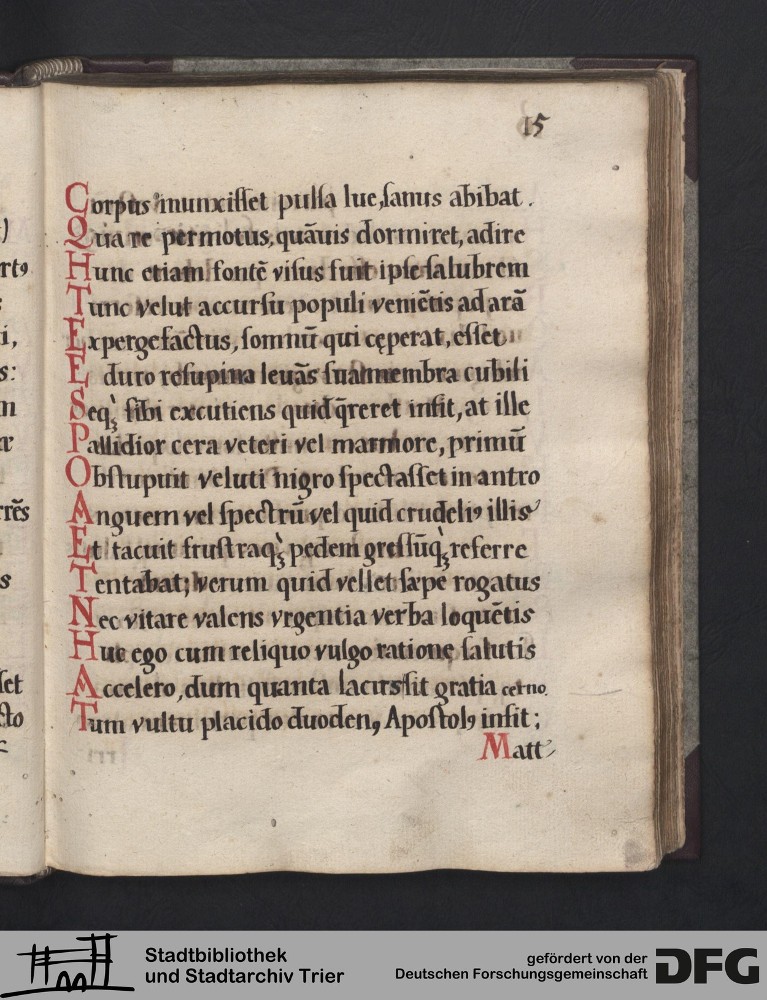 15
Corpus inunxiſſet pulſa lue, ſanus abibat.
Qua re permotus, quāuis dormiret, adire
Hunc etiam fontē viſus fuit ipſe ſalubrem
Tunc velut accurſu populi veniētis ad arā
Expergefactus, ſomnū qui cęperat, eſſet
E duro reſupina leuās ſua membra cubili
Seq̀ꝫ ſibi excutiens quid q̄reret inſit, at ille
Pallidior cera veteri vel marmore, primū
Obſtupuit veluti nigro ſpectaſſet in antro
Anguem vel ſpectrū vel quid crudeliꝰ illis
Et tacuit fruſtraq̀ꝫ pedem greſſūq̀ꝫ referre
Tentabat; verum quid vellet ſæpe rogatus
Nec vitare valens vrgentia verba loquētis
Huc ego cum reliquo vulgo ratione ſalutis
Accelero, dum quanta lacus ſit gratia cerno.
Tum vultu placido duodenꝰ Apoſtolꝰ inſit;
Matt
rtꝰ
i,
s:
n
rrēs
s
ſet
cto
Stadtbibliothek
und Stadtarchiv Trier
gefördert von der
Deutschen Forschungsgemeinschaft
DFG